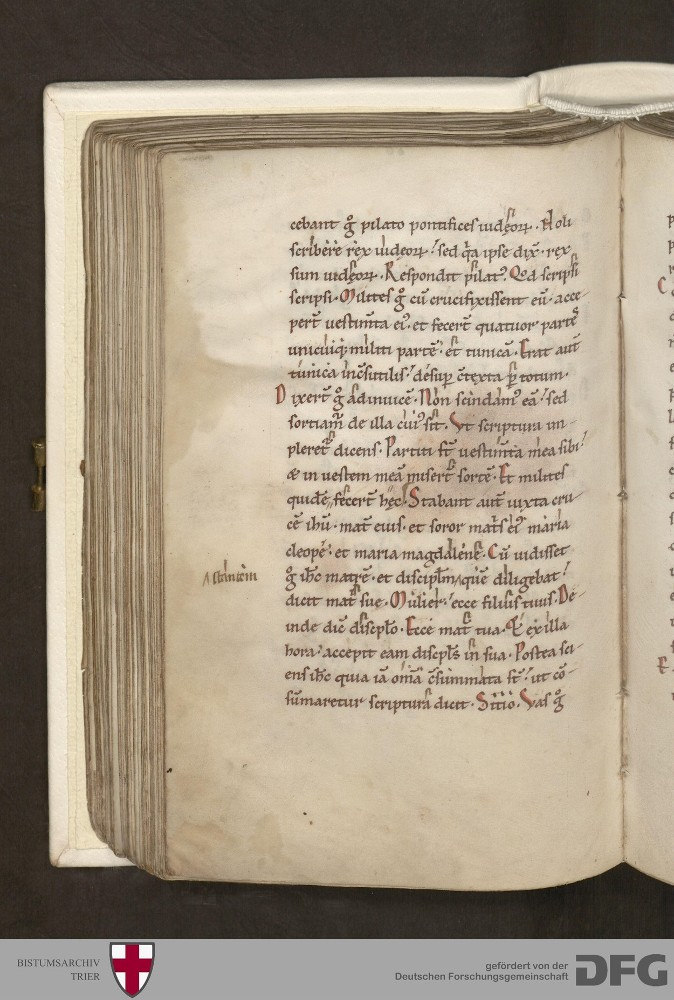 cebant g̊ pilato pontifices iudęoꝝ. Noli
scribere rex iudeoꝝ. sed q̇a ipse dix̄. rex
sum iudęoꝝ. Respondit pilatꝰ. Qd̄ scripsi
scripsi. Milites g̊ cū crucifixissent eū. acce-
perт̄ uestim̄ta eiꝰ. et fecert̄ quatuor partes
unicuiq; militi partē. et tunicā. Erat aut̄
tunica incōsutilis. desup̄ cōtexta ꝑ totum.
Dixert̄ g̊ adinuicē. Non scindamꝰ eā. sed
sortiamur̄ de illa cuiꝰ sit. Vt scriptura im-
pleretr̄ dicens. Partiti st̄ uestim̄ta mea sibi.
& in uestem meā misert̄ sortē. Et milites
quidē fecert̄ hęc. Stabant aut̄ iuxta cru-
cē ihū. mat̄ eius. et soror mat̄s eiꝰ maria
cleopę. et maria magdalenę. Cū uidisset
g̊ ihc̄ matrē. et discipl̄m quē diligebat.
stantem
dicit mat̄ suę. Mulier. ecce filius tuus. De-
inde dic̄ discipl̄o. Ecce mat̄ tua. Et ex illa
hora. accepit eam discipl̄s in sua. Postea sci-
ens ihc̄ quia iā om̄ia cōsummata st̄. ut cō-
sūmaretur scriptura dicit. Sitio. Vas g̊
BISTUMSARCHIV
TRIER
gefördert von der
Deutschen Forschungsgemeinschaft
DFG